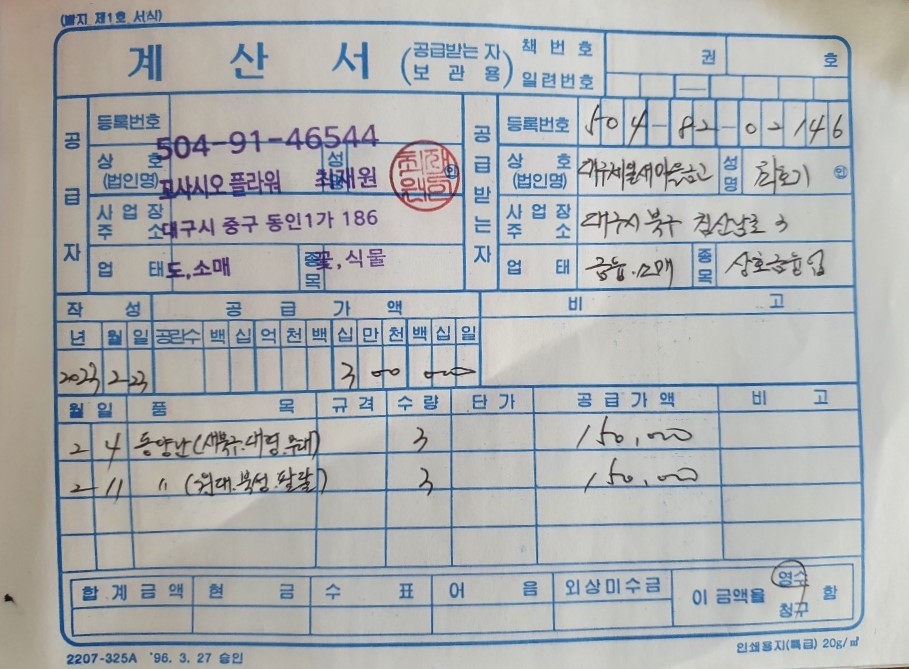 (별지 제1호 서식)
계 산 서 (공급받는 자 보관용)
책 번 호 권 호
일련번호
공급자
등록번호 504-91-46544
상 호 (법인명) 꼬사시오 플라워 성명 최재원 인
사업장 주소 대구시 중구 동인1가 186
업 태 도,소매 종목 꽃,식물
공급받는자
등록번호 504-82-02146
상 호 (법인명) 대구제일새마을금고 성명 인
사업장 주소 대구시 북구 침산남로 3
업 태 금융.소매 종목
작 성 공 급 가 액 비 고
년 월 일 공란수 백 십 억 천 백 십 만 천 백 십 일
2023 2 23 3 0 0 0 0 0
월 일 품 목 규 격 수 량 단 가 공 급 가 액 비 고
2 4 동양난 (새북구.대명.무태) 3 150,000
2 11 〃 ( 북성.팔달) 3 150,000
합 계 금 액 현 금 수 표 어 음 외상미수금 이 금액을 영수 청구 함
2207-325A '96. 3. 27 승인
인쇄용지(특급) 20g/㎡